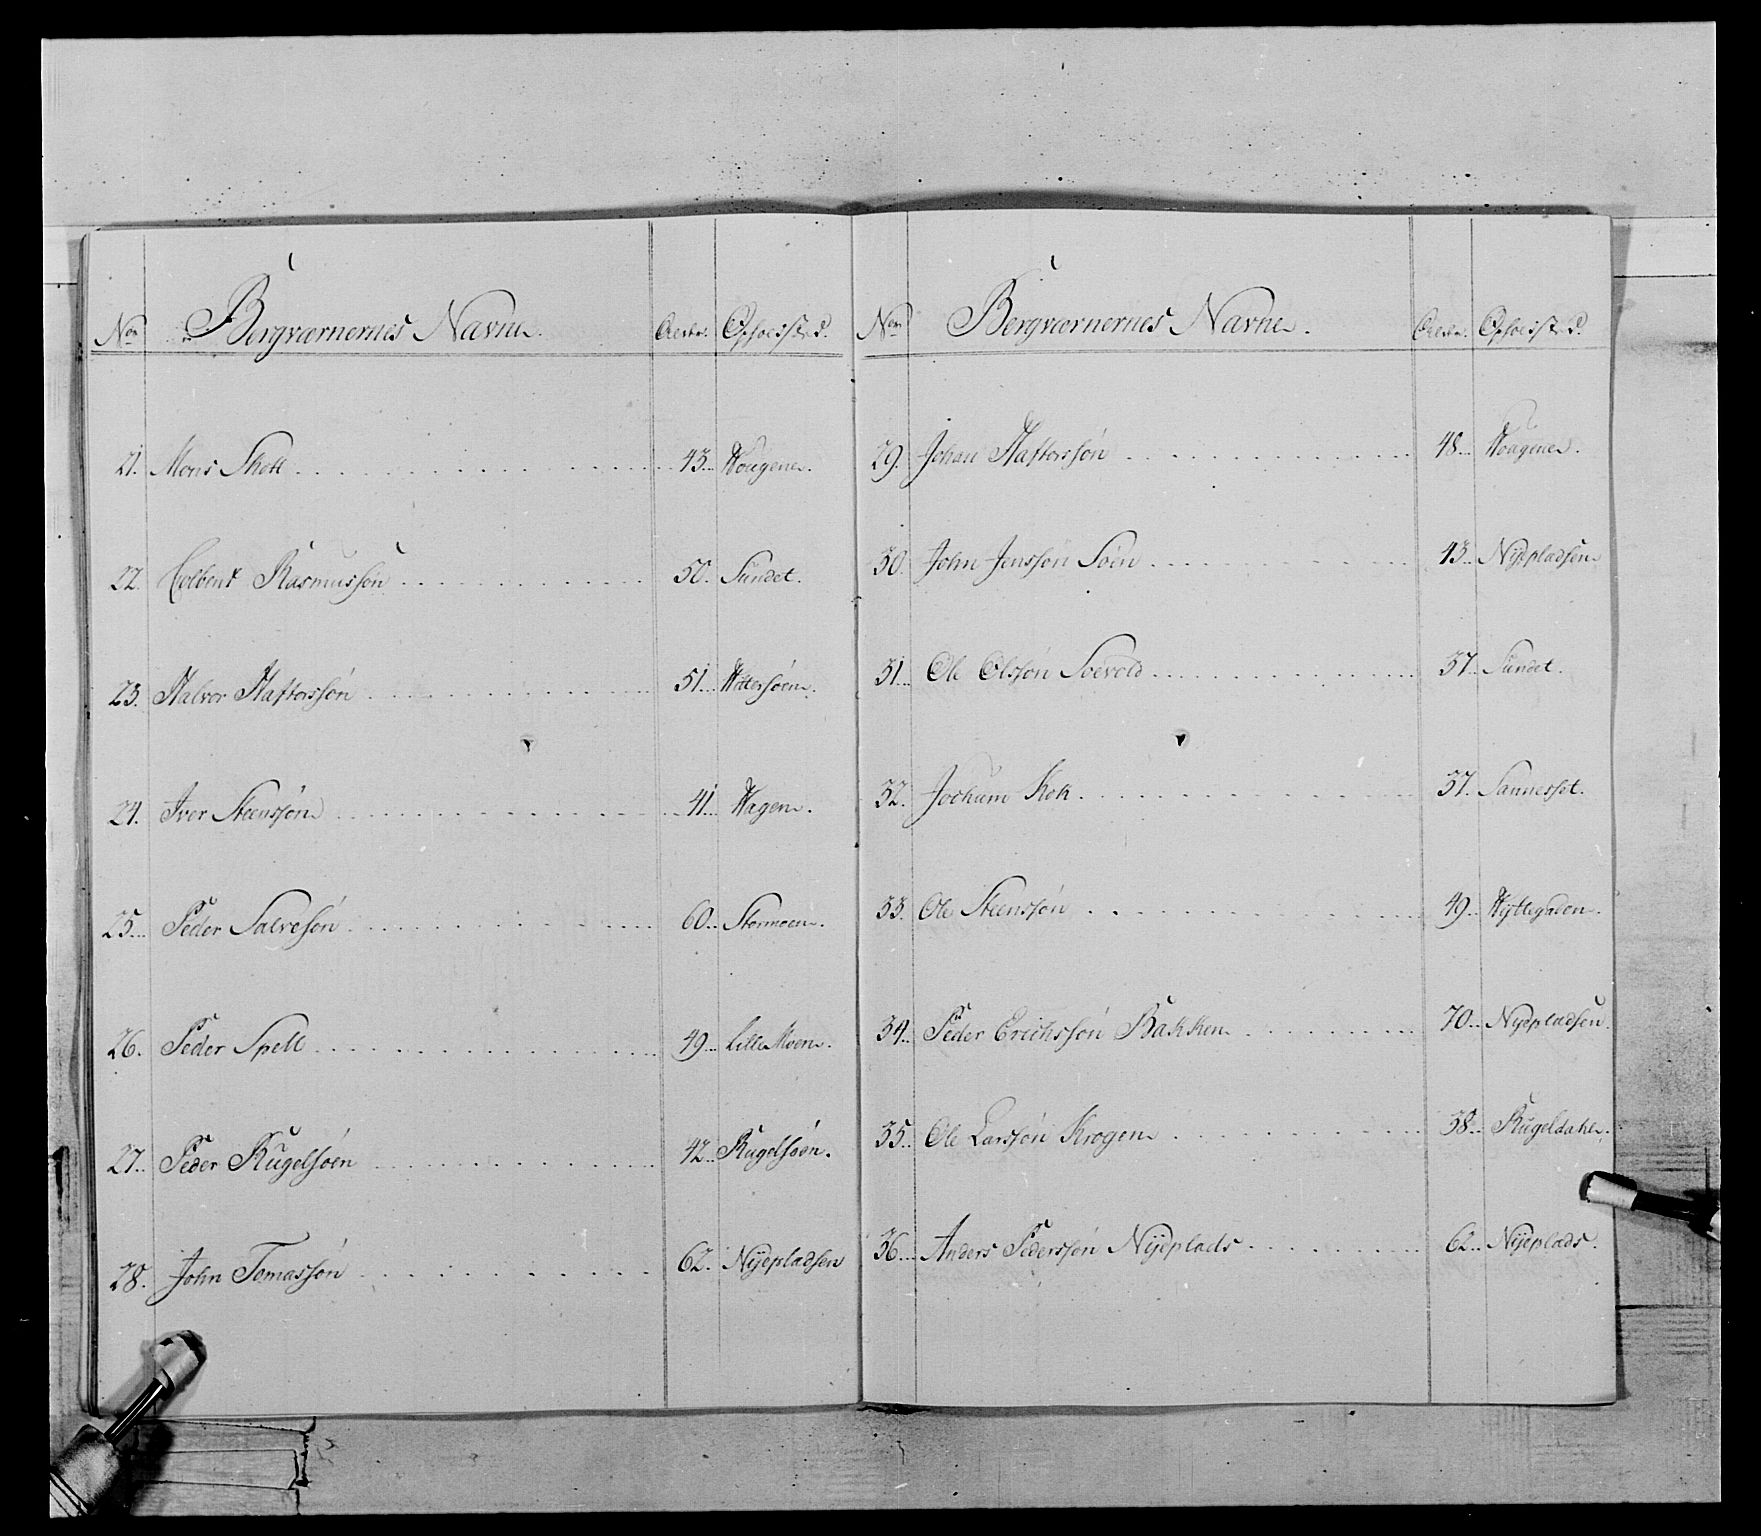 No Bergværnernes Navne. Alder. Opholdsted.
21. Mons Skott 43. Hougene.
22. Colbent Rasmusson 50. Sundet.
23. Halvor Haftorssøn 51. Hittersøen.
24. Iver Steenssøn 41. Hagen.
25. Peder Salvesøn 60. Stormoen.
26. Peder Spell 49. Lille Moen.
27. Peder Kugelsøen 42. Kugelsøen.
28. John Tomassøn 62. Nÿepladsen
No Bergværnernes Navne. Alder. Opholdsted.
29. Johan Haftorssøn 48. Hougene.
30. John Jenssøn Søen 43. Nÿepladsen
31. Ole Olssøn Soevold 37. Sundet.
32. Jochum Kok 37. Sannesset.
33. Ole Steenssøn 49. Hÿttegaden.
34. Peder Erichssøn Bakken 70. Nÿepladsen.
35. Ole Larssøn Krogen 38. Kugeldahl.
36. Anders Pederssøn Nÿeplads 62. Nÿeplads.